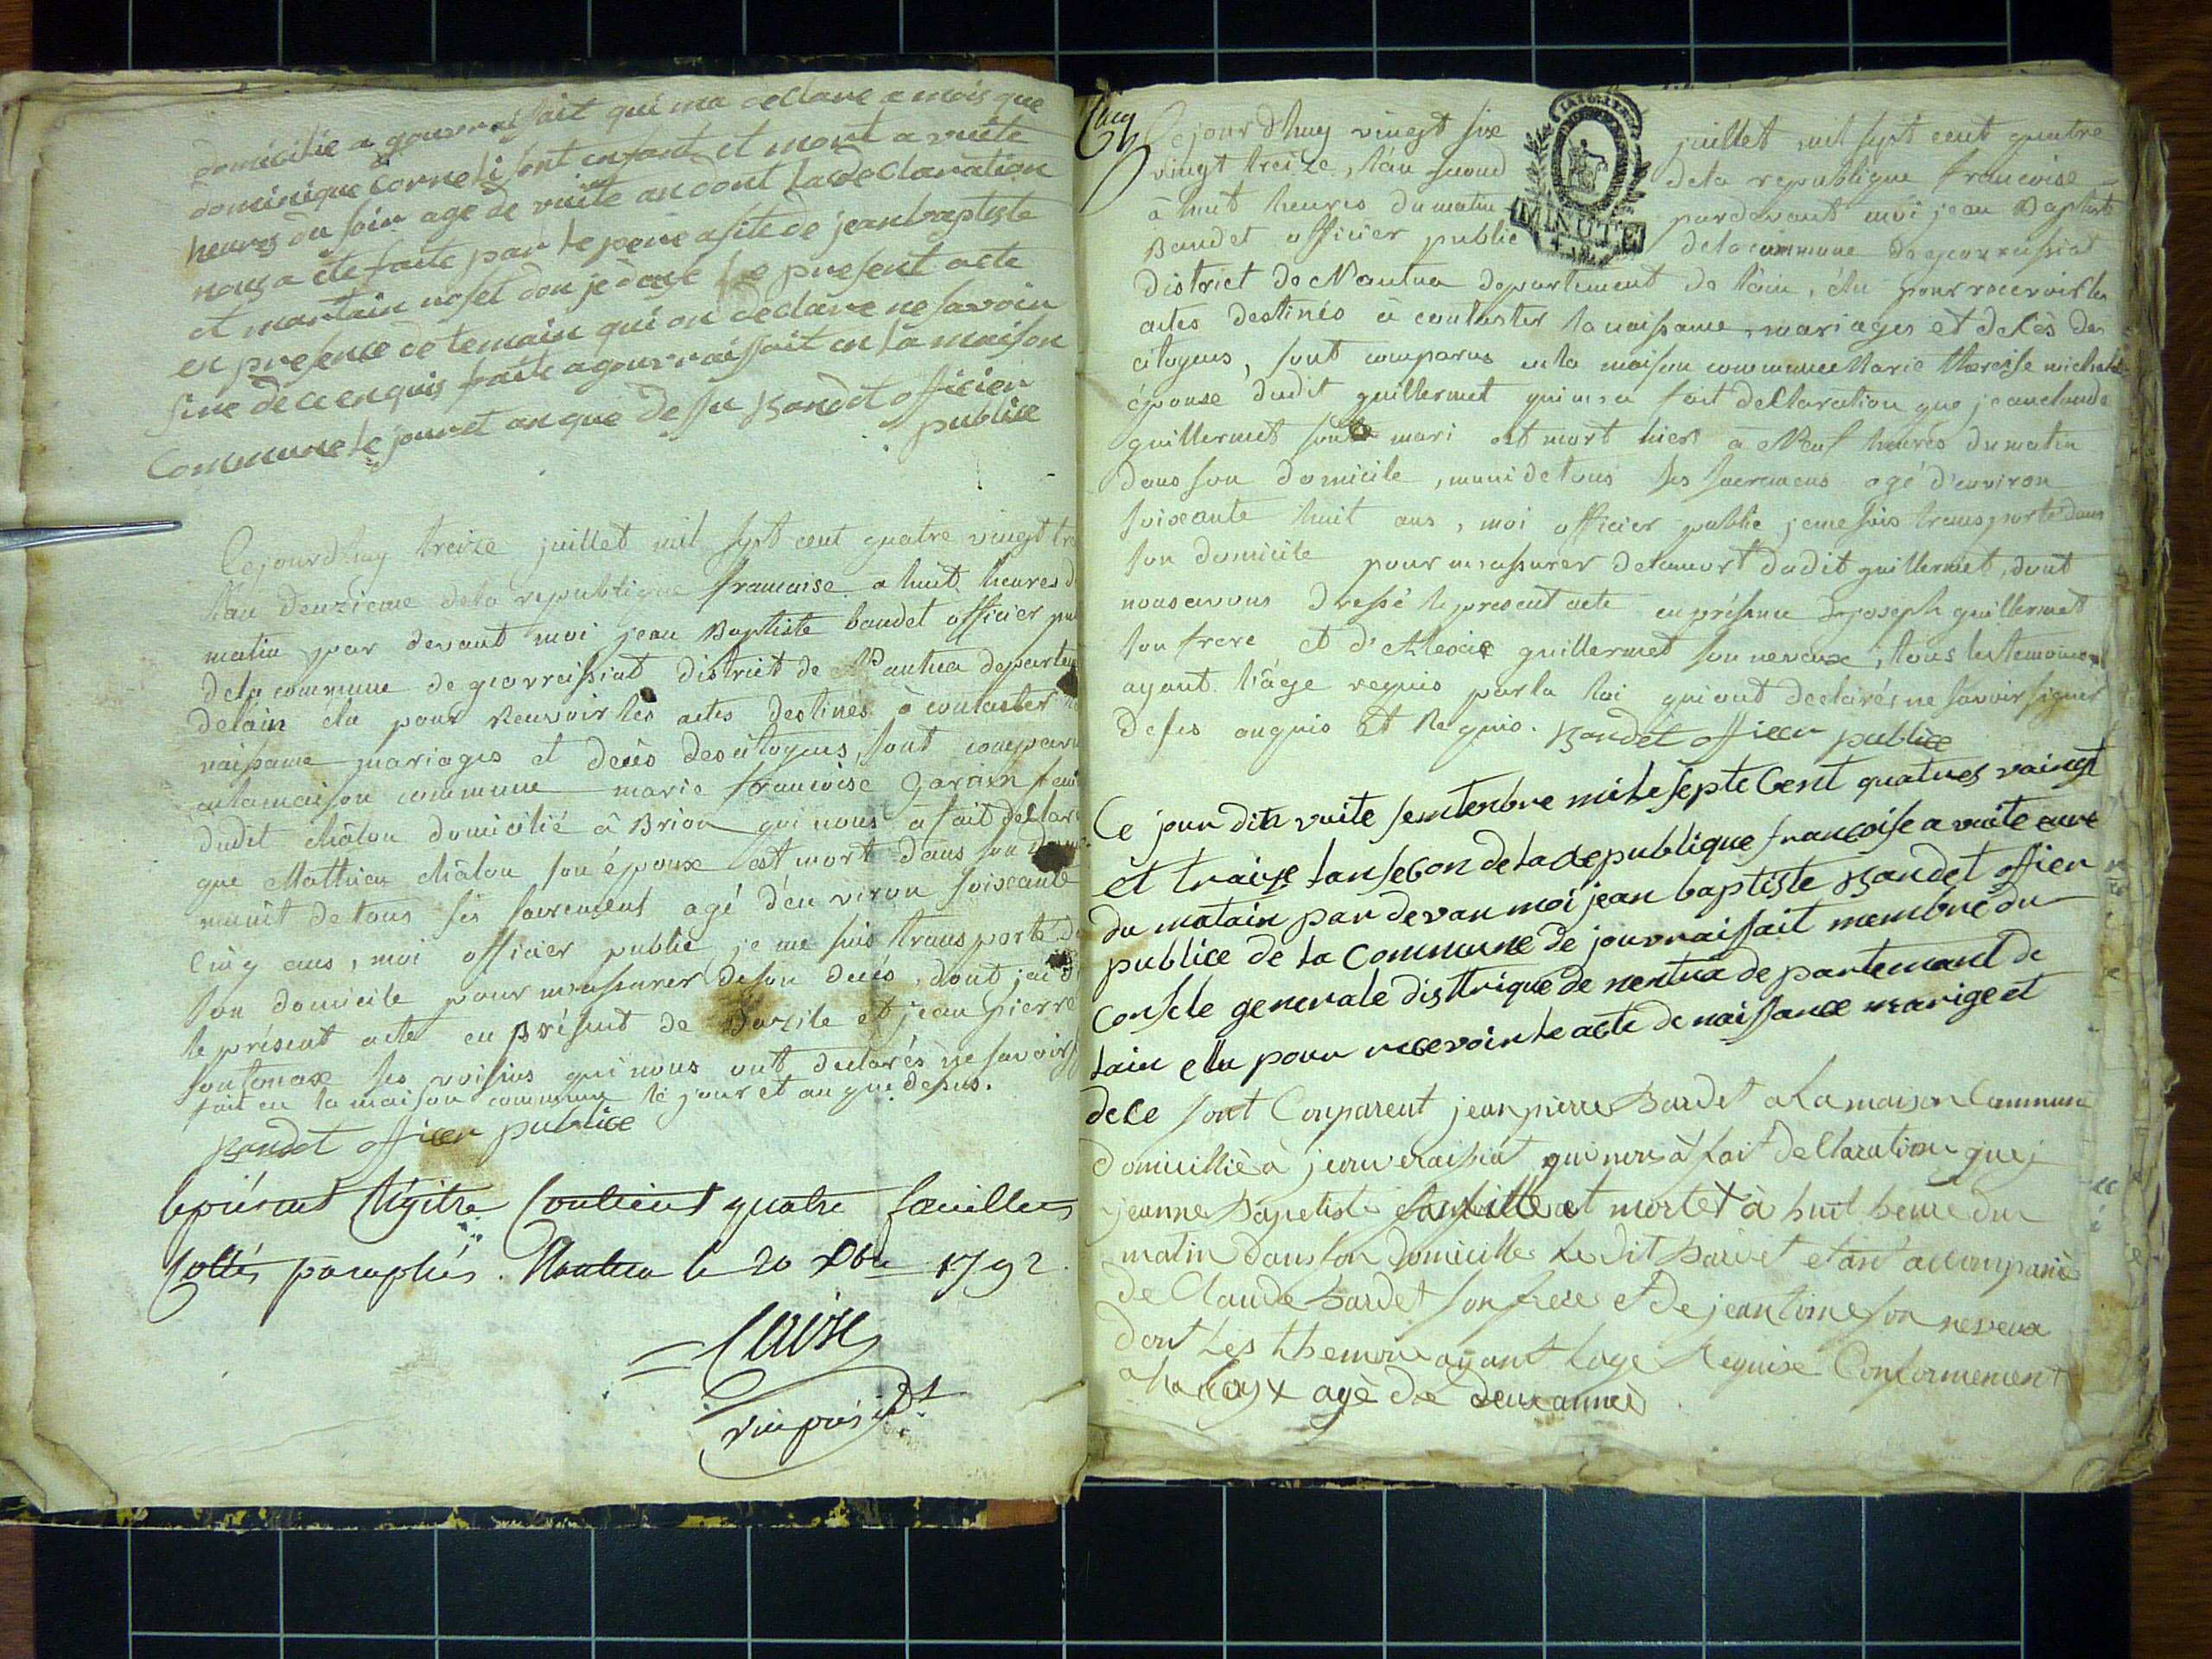 domicilie a gouvraissait qui ma declare a mois que
dominique Corneli sont enfant et mort a vuite
heures du soir age de vuite an dont la declaration
nous a ete faite par le pere asite de jean baptiste
et martain nosel don je dresse le present acte
en presence de temain qui on declare ne savoir
sine de ce enquis faite a gouvraissait en la maison
Commune le jour et an que dessu Bandet officier
publice
Cejourdhuy treize juillet mil sept cent quatre vingt tre
l'an deuxieme dela republique francaise a huit heures d
matin par devant moi jean Baptiste bandet officier pu
dela commune de geovreissiat district de Nantua departem
delain élu pour Recevoir les actes destinés à constater
naissance mariages et decès des citoyens, sont comparu
en la maison commune marie francoise Garnin
dudit châlon domicilié à Brion qui nous a fait déclar
que Matthieu châlon son époux est mort dans son dom
munit de tous ses sacrements agé d'environ soixante
Cinq ans, moi officier public je me suis transporté d
son domicile pour m'assurer de son decés, dont j'ai d
le présent acte en présent de Bazile et jean pierre
soutonax ses voisins qui nous ont declarés ne savoir
fait en la maison commune le jour et an que dessus.
Bandet officer publice
le présent Régitre Contient quatre feuillets
cottés paraphés. Nantua le 20 Xbre 1792.
vice présidt
Cejourdhuy vingt six juillet mil sept cent quatre
vingt treize, l'an second dela republique francoise
à huit heures du matin pardevant moi jean Baptiste
Bandet officier public dela commune de geovreissiat
MINUTE
district de Nantua departement de l'ain, élu pour recevoir les
actes destinés à constater la naissance, mariages et decès des
citoyens, sont comparus en la maison commune Marie thereise
épouse dudit guillermet qui m'a fait declaration que jean claude
guillermet son mari est mort hier à Neuf heures du matin
dans son domicile, muni de tous ses sacremens agé d'environ
soixante huit ans, moi officier public je me suis transporté dans
son domicile pour m'assurer de la mort dudit guillermet, dont
nous avons dressé le present acte en présence de joseph guillermet
son frere et d'Alexis guillermet son neveux, tous les temoins
ayant l'âge requis par la loi qui ont declarés ne savoir signer
de ses enquis et Requis. Bandet officer publice
Ce jour dit vuite semtenbre mile septe Cent quatres vaingt
et traize lan secon de la republique francoise a vuite eure
du matain par devan moi jean baptiste Bandet offier
publice de la Commune de jouvraissait membre du
Consele generale distrique de nentua departemant de
lain elu pour recevoir le acte de naissance marige et
dece sont Conparent jean pierre Bardet a La maison Commune
domicilliè à jeuveraissiat qui nous à fait declaration que
jeanne Bapetiste sa fille est mortet à huit heure du
matin dans son domicille Le dit Bardet etant accompaniè
de Claude Bardet son frere et de jean tome son neveux
dont Les themoin ayant Lage Requise Conformement
a la Loy x agè de deux anneè